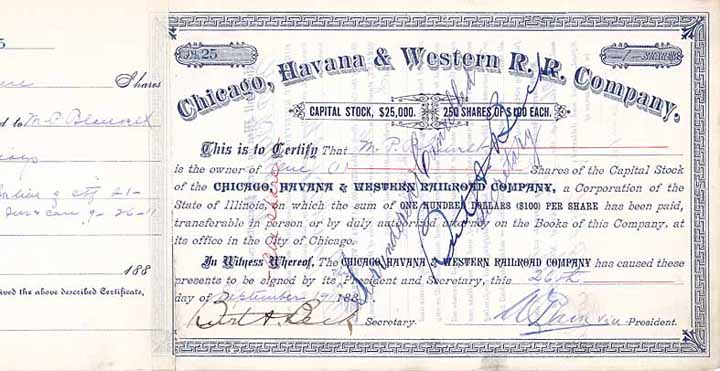 5
Shares
d to M. P. Blauvelt
9-26-11
188
ived the above described Certificate,
No. 25
1 SHARES
Chicago, Havana & Western R. R. Company.
CAPITAL STOCK, $25,000. 250 SHARES OF $100 EACH.
This is to Certify That M. P. Blauvelt
is the owner of One (1) Shares of the Capital Stock
of the CHICAGO, HAVANA & WESTERN RAILROAD COMPANY, a Corporation of the
State of Illinois, on which the sum of ONE HUNDRED DOLLARS ($100) PER SHARE has been paid,
transferable in person or by duly authorized attorney on the Books of this Company, at
its office in the City of Chicago.
In Witness Whereof, The CHICAGO, HAVANA & WESTERN RAILROAD COMPANY has caused these
presents to be signed by its President and Secretary, this 26th
day of September 1911 188
Secretary. Vice President.
Surrendered & Cancelled
Secretary